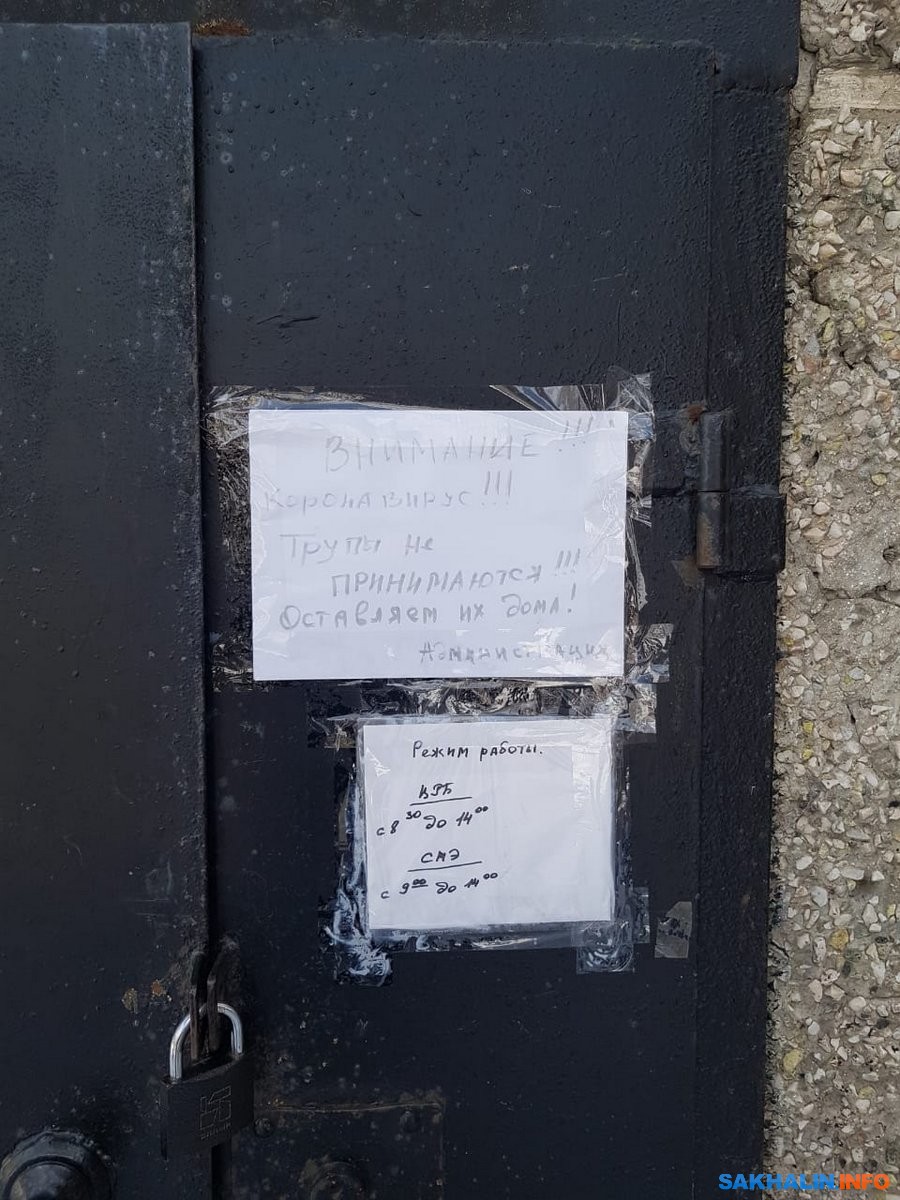 ВНИМАНИЕ!!!
Коронавирус!!!
Трупы не
ПРИНИМАЮТСЯ!!!
Оставляем их дома!
Администрация
Режим работы.
ЦРБ
с 8 30 до 14 00
СМЭ
с 9 00 до 14 00
SAKHALIN.INFO